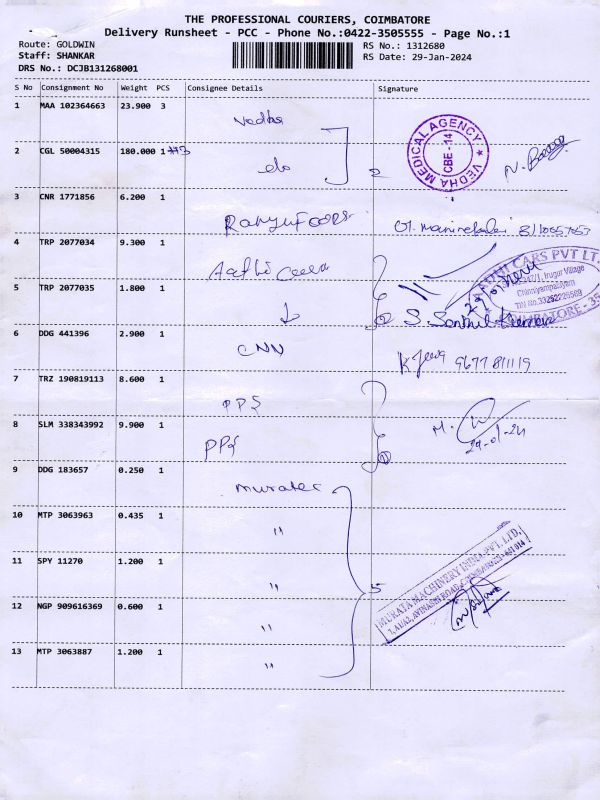 THE PROFESSIONAL COURIERS, COIMBATORE
Delivery Runsheet - PCC - Phone No.:0422-3505555 - Page No.:1
Route: GOLDWIN
RS No.: 1312680
Staff: SHANKAR
RS Date: 29-Jan-2024
DRS No.: DCJB131268001
S No Consignment No Weight PCS Consignee Details Signature
1 MAA 102364663 23.900 3
VEDHA MEDICAL AGENCY CBE-14
2 CGL 50004315 180.000 1 do 2
3 CNR 1771856 6.200 1
4 TRP 2077034 9.300 1
5 TRP 2077035 1.800 1
CARS PVT LTD.
Irugur Village
Chinniyampalayam
COIMBATORE - 35
6 DDG 441396 2.900 1 CNN 9677811119
7 TRZ 190819113 8.600 1 PPS
8 SLM 338343992 9.900 1 PPS
29-01-24
9 DDG 183657 0.250 1
10 MTP 3063963 0.435 1 "
11 SPY 11270 1.200 1 " 5
MURATA MACHINERY INDIA PVT. LTD.
12 NGP 909616369 0.600 1 "
13 MTP 3063887 1.200 1 "